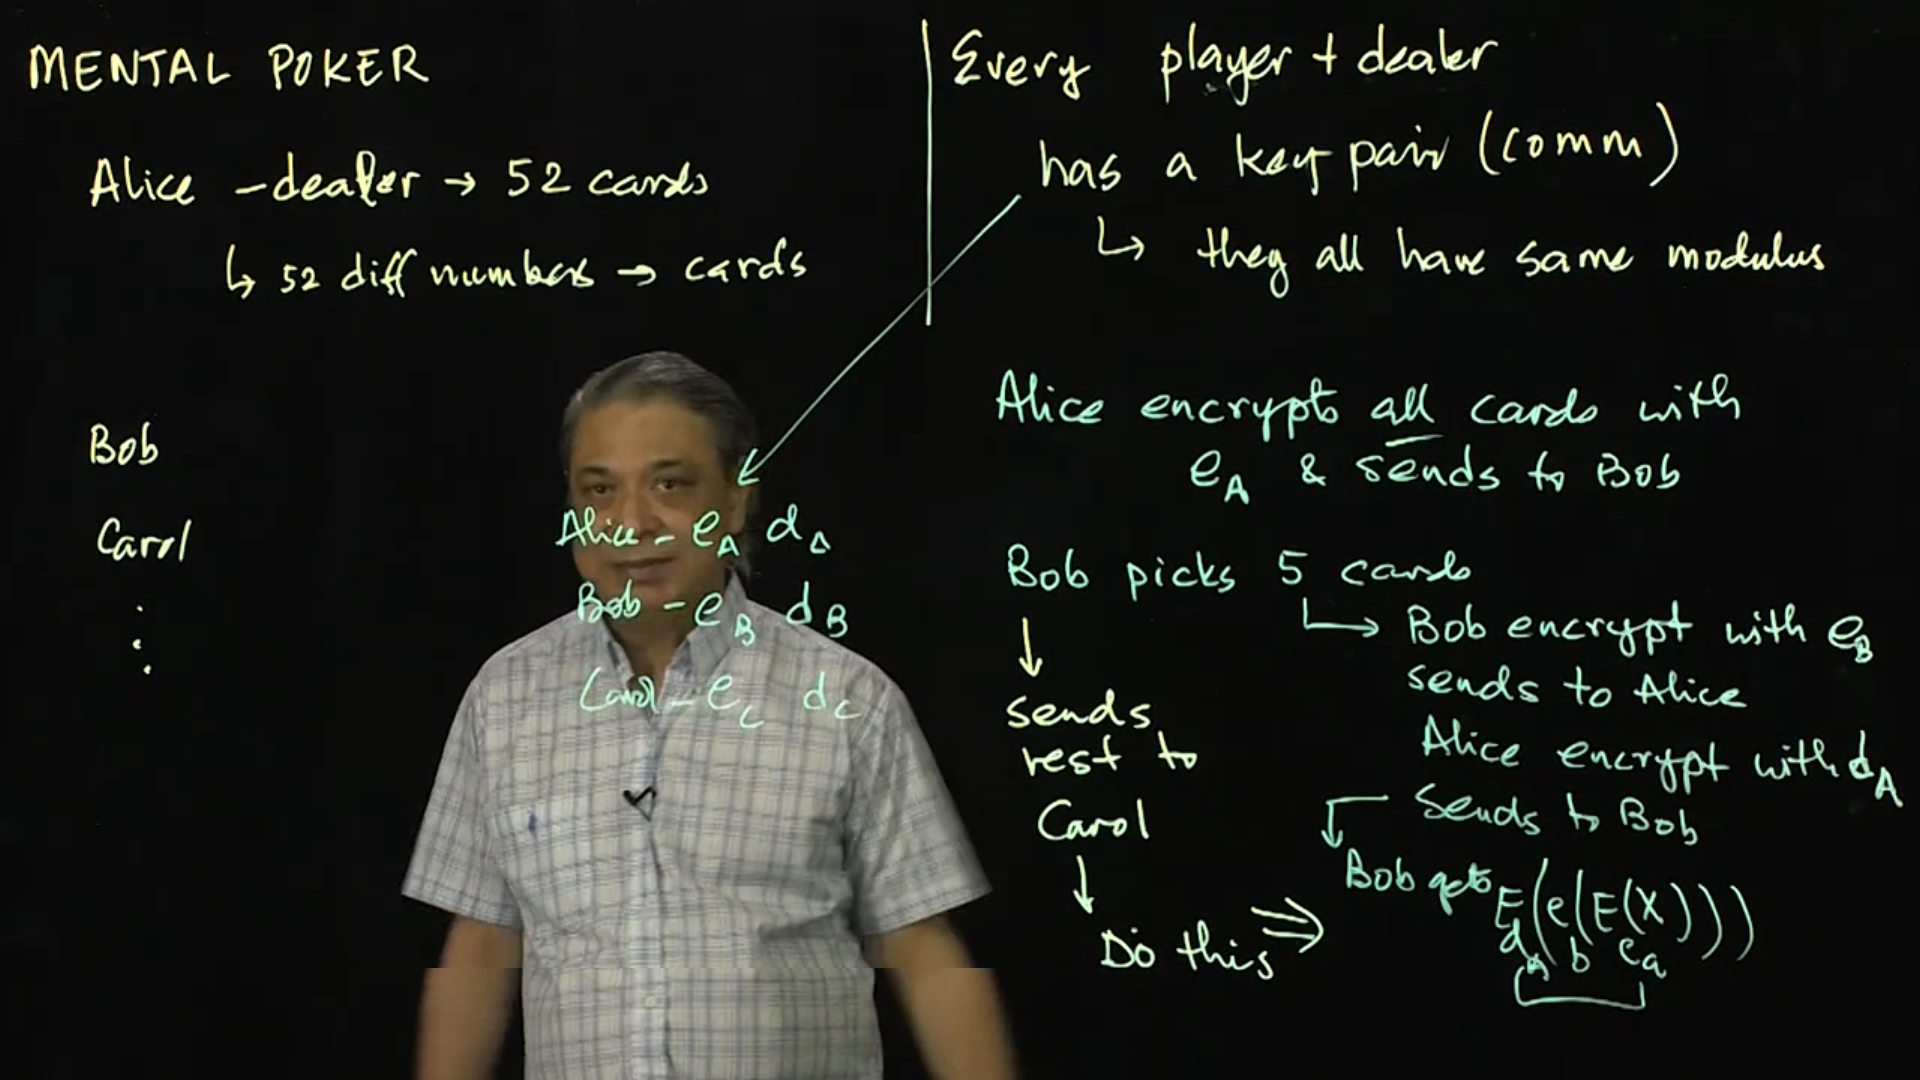 MENTAL POKER
Alice - dealer → 52 cards
↳ 52 diff numbers → cards
Bob
Carol
⋮
Alice - e_A d_A
Bob - e_B d_B
Carol - e_C d_C
Every player + dealer
has a key pair (comm)
↳ they all have same modulus
Alice encrypts all cards with
e_A & sends to Bob
Bob picks 5 cards
↳ Bob encrypt with e_B
sends to Alice
Alice encrypt with d_A
sends to Bob
Bob gets E_{d_A}(e_b(E_{e_a}(X)))
↓
sends
rest to
Carol
↓
Do this ⇒